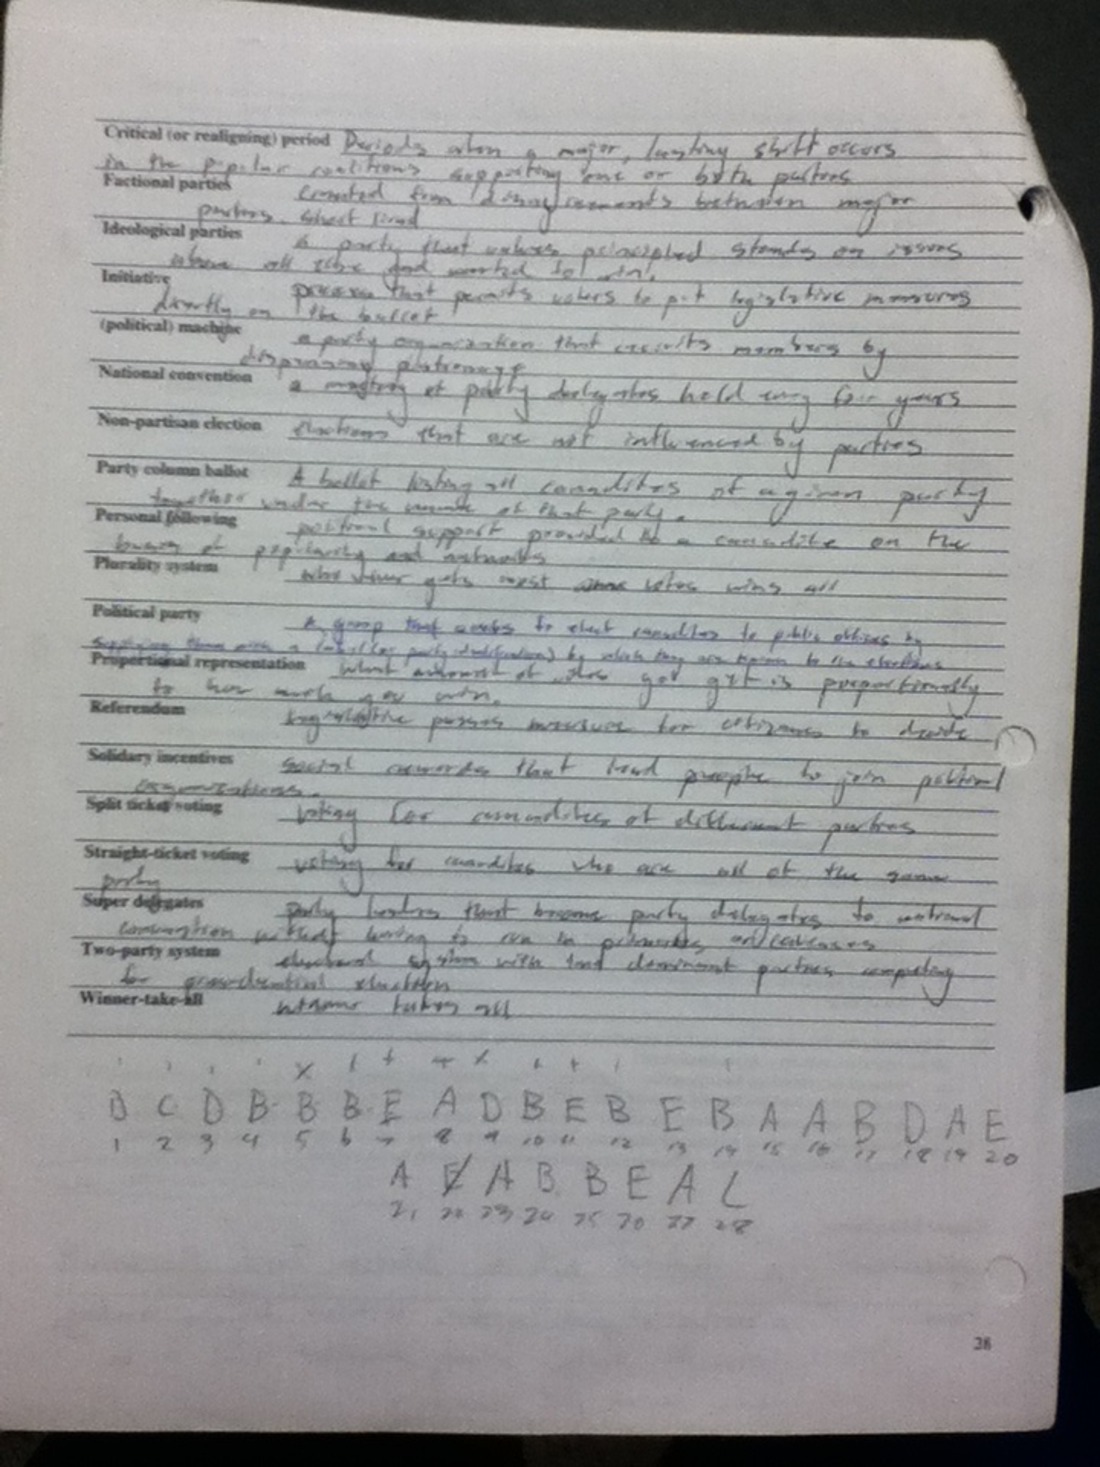 Critical (or realigning) period Periods when a major, lasting shift occurs
in the popular coalitions supporting one or both parties
Factional parties created from disagreements between major
parties. short lived
Ideological parties A party that values principled stands on issues
above all else
Initiative process that permits voters to put legislative measures
directly on the ballot
(political) machine a party organization that recruits members by
dispensing patronage
National convention a meeting of party delegates held every four years
Non-partisan election elections that are not influenced by parties
Party column ballot A ballot listing all canadites of a given party
together under the name of that party.
Personal following political support provided to a canadite on the
basis of popularity and networks
Plurality system who ever gets most votes wins all
Political party A group that seeks to elect canadites to public offices by
supplying them with a label (or party identification) by which they are known to the
Proportional representation What amount of you get is proportionally
to how much you win.
Referendum legislative passes measure for citizens to decide
Solidary incentives social rewards that lead people to join political
organizations.
Split ticket voting voting for canadites of different parties
Straight-ticket voting voting for canadites who are all of the same
party
Super delegates party leaders that become party delegates to national
convention without having to run in primaries or caucuses
Two-party system electoral system with two dominant parties competing
for presidential election
Winner-take-all winner takes all
D C D B B B E A D B E B E B A A B D A E
1 2 3 4 5 6 7 8 9 10 11 12 13 14 15 16 17 18 19 20
A E A B B E A C
21 22 23 24 25 26 27 28
28